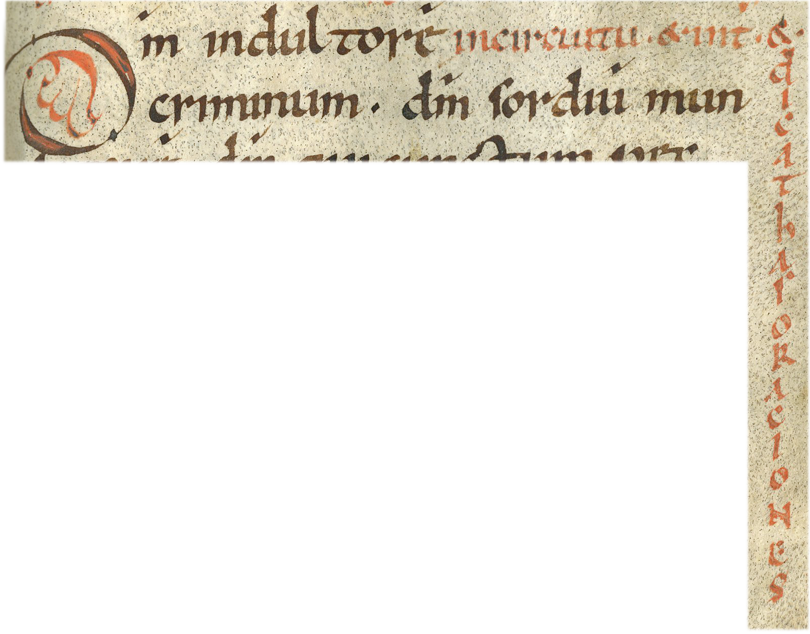 Dm̄ indultorē incircuitu. & int̄.
criminum. dm̄ sordiū mun
& dicat has oraciones